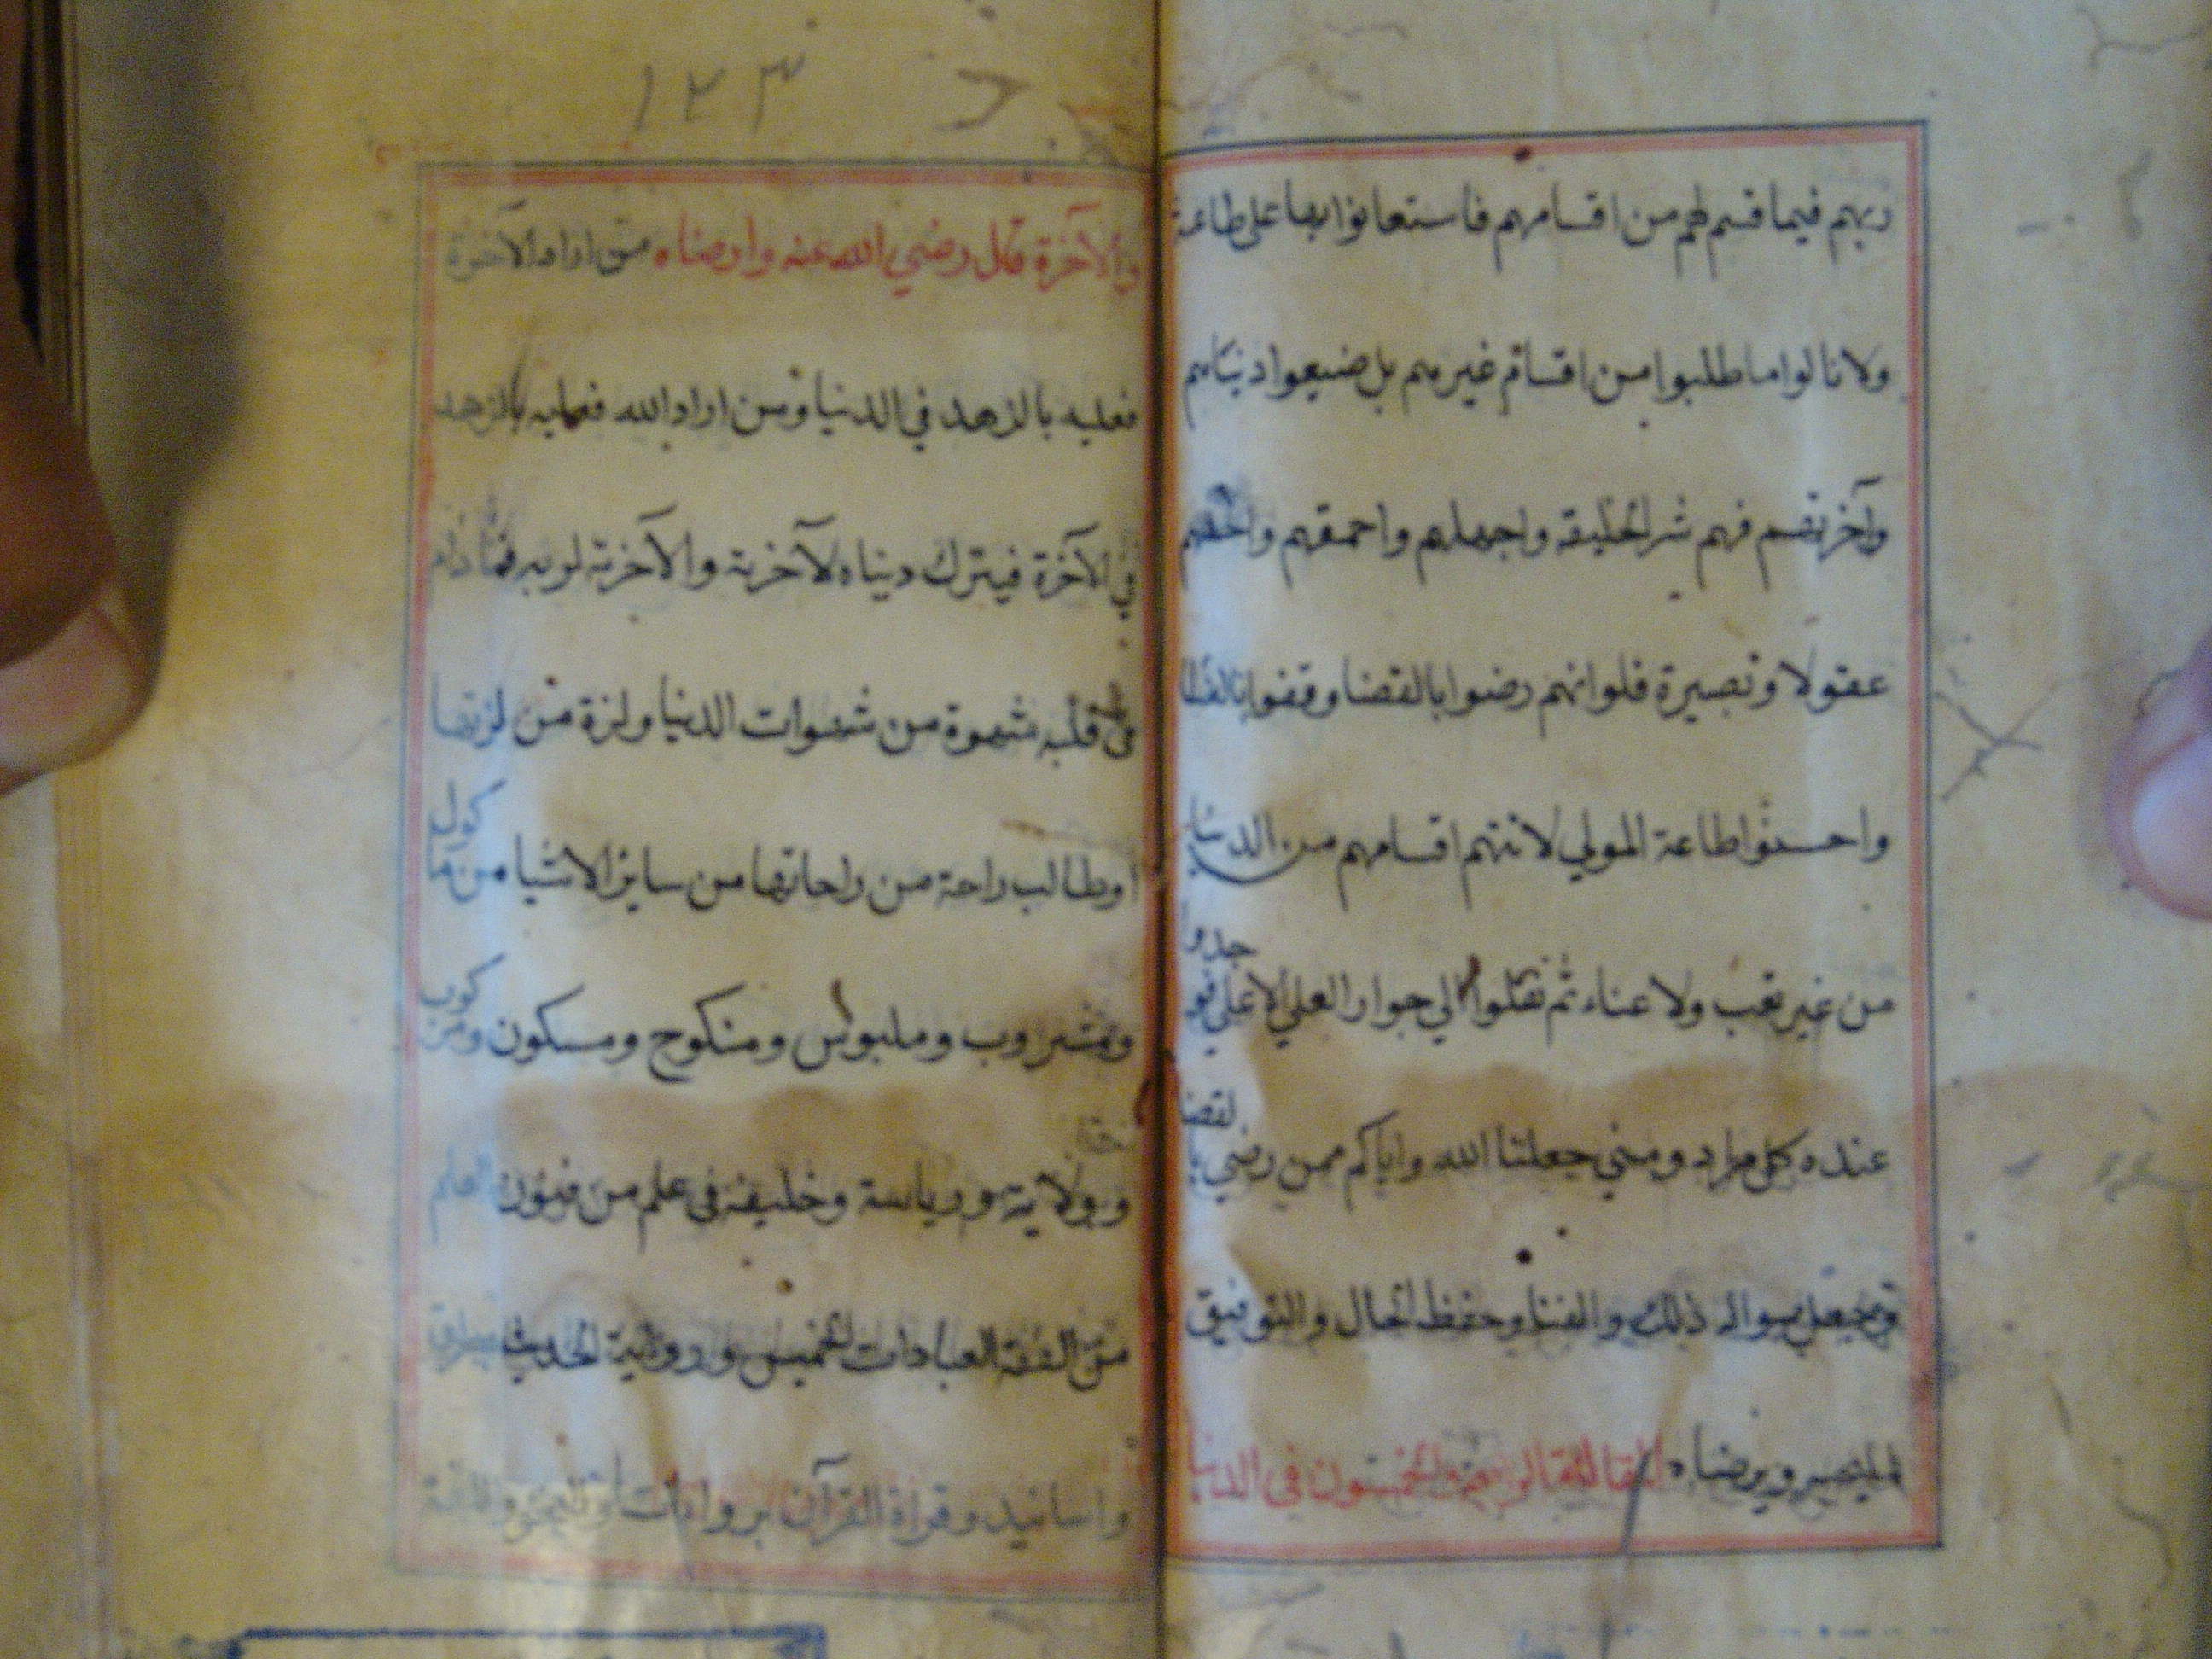 ربهم فيما قسم لهم من اقسامهم فاستعانوا بها على طاعة
ولا نالوا ما طلبوا من اقسام غيرهم بل ضيعوا دنياهم
وآخرتهم فهم شر الخليقة واجهلهم واحمقهم
عقولا وبصيرة فلو انهم رضوا بالقضا وقفوا
واحسنوا طاعة المولي لاتتهم اقسامهم من الدنيا
من غير تعب ولا عناء ثم نقلوا الي جوار العلي الاعلي فوجدوا
عنده كل مراد ومني جعلنا الله واياكم ممن رضي بالقضا
وجعل سواله ذلك والفنا وحفظ الحال والتوفيق
ويرضاه المقالة الرابعة والخمسون في الدنيا
١٢٣
والآخرة قال رضي الله عنه وارضاه من اراد الآخرة
فعليه بالزهد في الدنيا ومن اراد الله فعليه بالزهد
في الآخرة فيترك دنياه لآخرته والآخرته لربه فما دام
في قلبه شهوة من شهوات الدنيا ولزة من لزتها
او طالب راحة من راحاتها من ساير الاشيا من ماكول
ومشروب وملبوس ومنكوح ومسكون ومركوب
وولاية ورياسة وخليفة في علم من فنون العلم
من الفقة العبادات الخميس ورواية الحديث
واسانيد وقراة القرآن بروايات